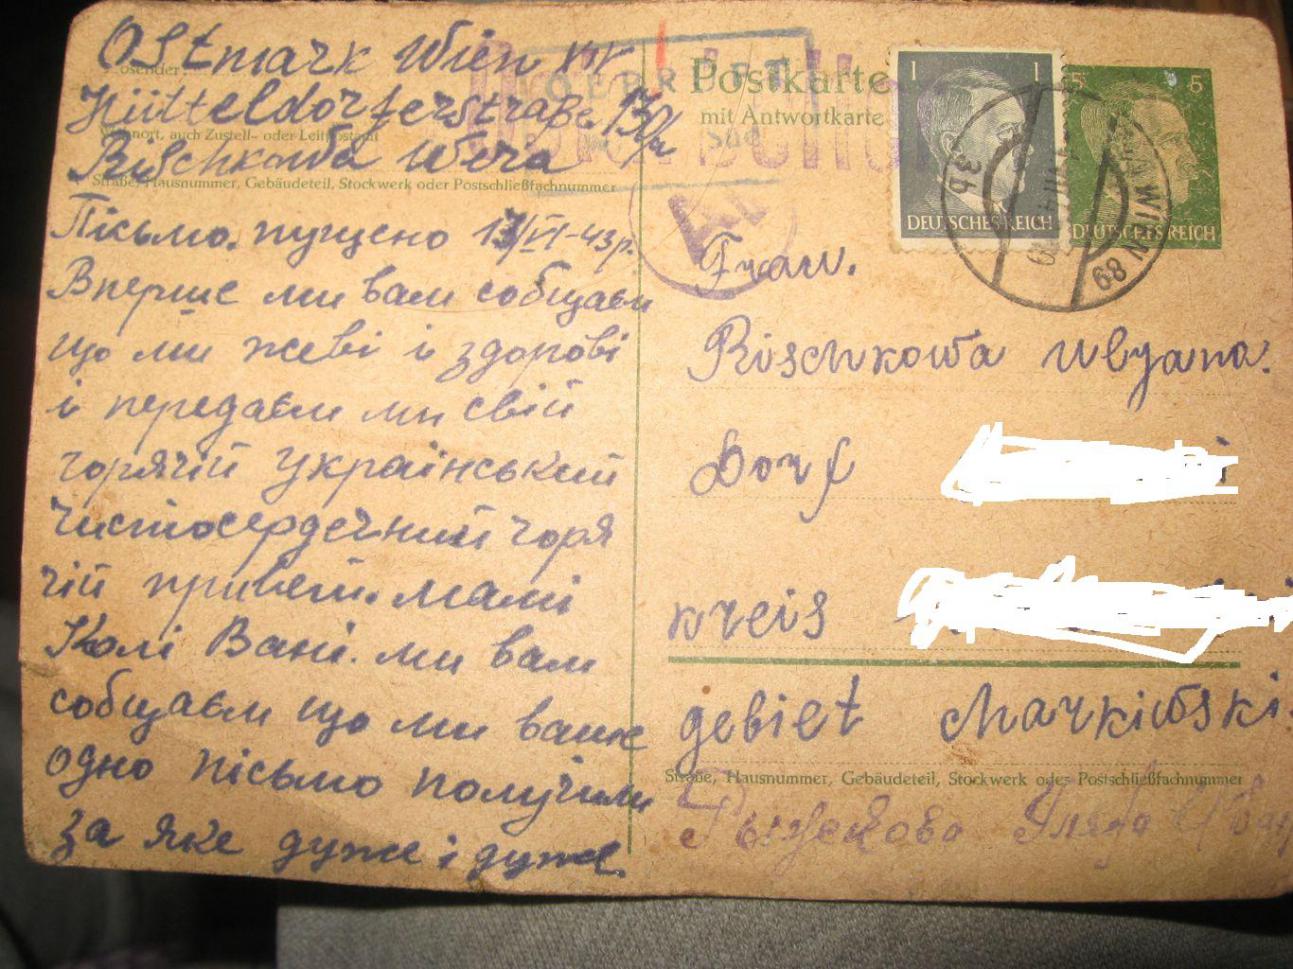 Ostmark Wien XIV
Absender:
Hütteldorferstraße 130/a
Wohnort, auch Zustell- oder Leitpostamt
Rischkowa Wera
Straße, Hausnummer, Gebäudeteil, Stockwerk oder Postschließfachnummer
Пісьмо. пущено 17/VI-43р.
Вперше ми вам собщаєм
що ми жеві і здорові
і передаєм ми свій
горячій український
чистосердечний горя
чій привет. мамі
Колі Вані. ми вам
собщаєм що ми ваше
одно пісьмо получили
за яке дуже і дуже.
Postkarte
mit Antwortkarte
1 1
DEUTSCHES REICH
5 5
DEUTSCHES REICH
WIEN 89
Frau.
Rischkowa Uljana.
Dorf
kreis
gebiet Charkiwski.
Straße, Hausnummer, Gebäudeteil, Stockwerk oder Postschließfachnummer